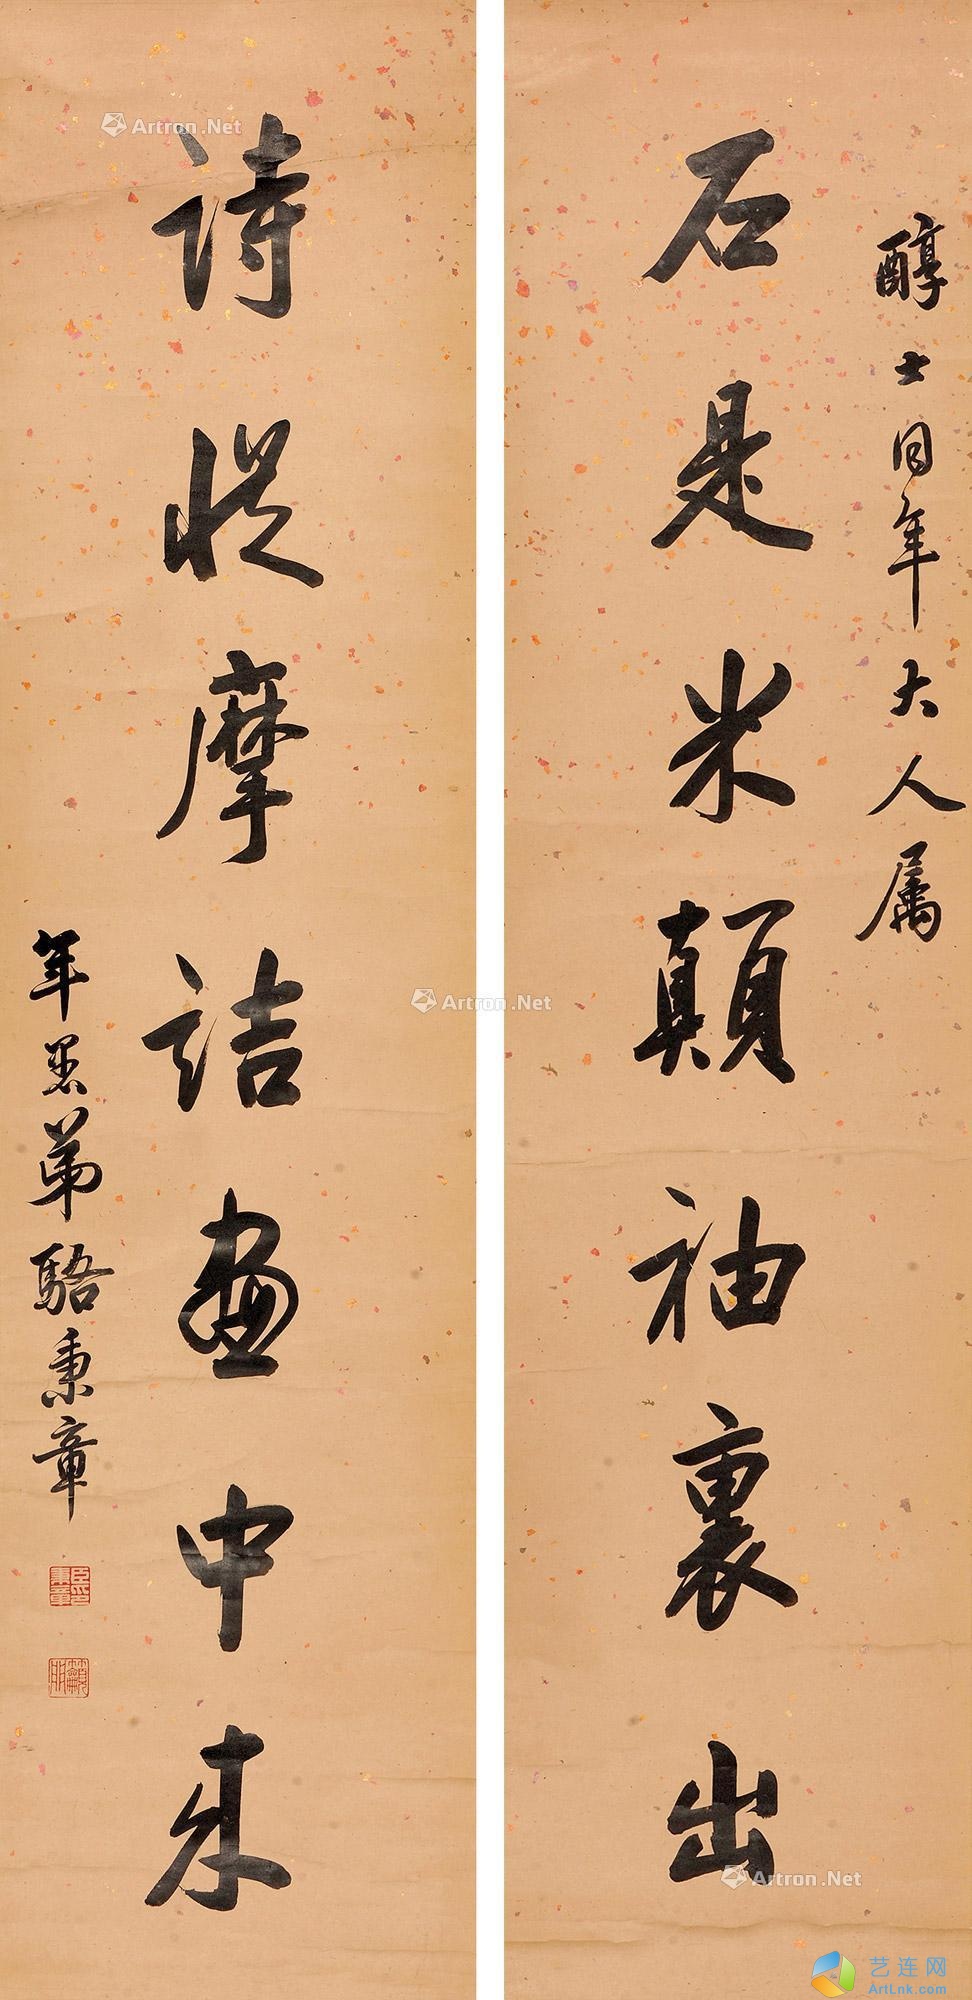 醇士同年大人属
石是米顛袖裏出
詩從摩詰畫中來
年愚弟駱秉章
臣印秉章
Artron.Net
Artron.Net
Artron.Net
艺连网
ArtLnk.com